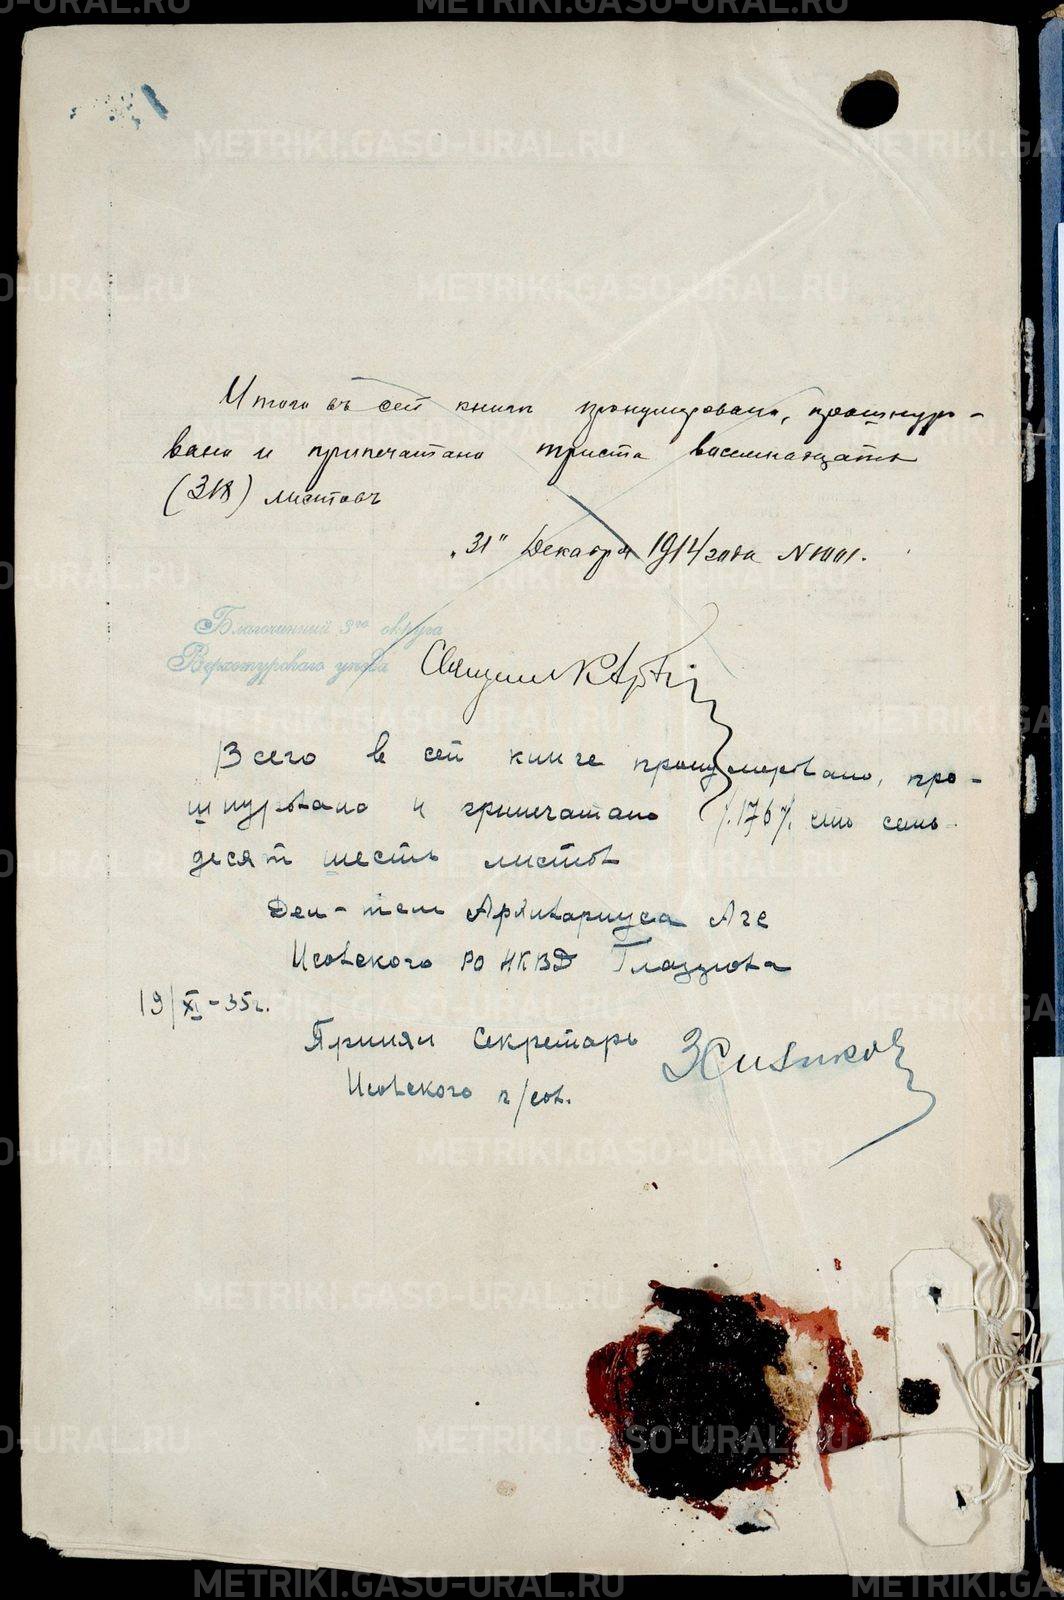 Итого въ сей книгѣ пронумеровано, прошнуро-
вано и припечатано триста восемнадцать
(318) листовъ
„31" Декабря 1914 года N 1001.
Благочинный 3го округа
Верхотурскаго уѣзда Священ
Всего в сей книге пронумеровано, про-
шнуровано и припечатано /.176/. сто семь-
десят шесть листов
Дел-тель Архивариуса Аге
Исовского РО НКВД
19/XI-35г.
Принял Секретарь
Исовского п/сов.
METRIKI.GASO-URAL.RU